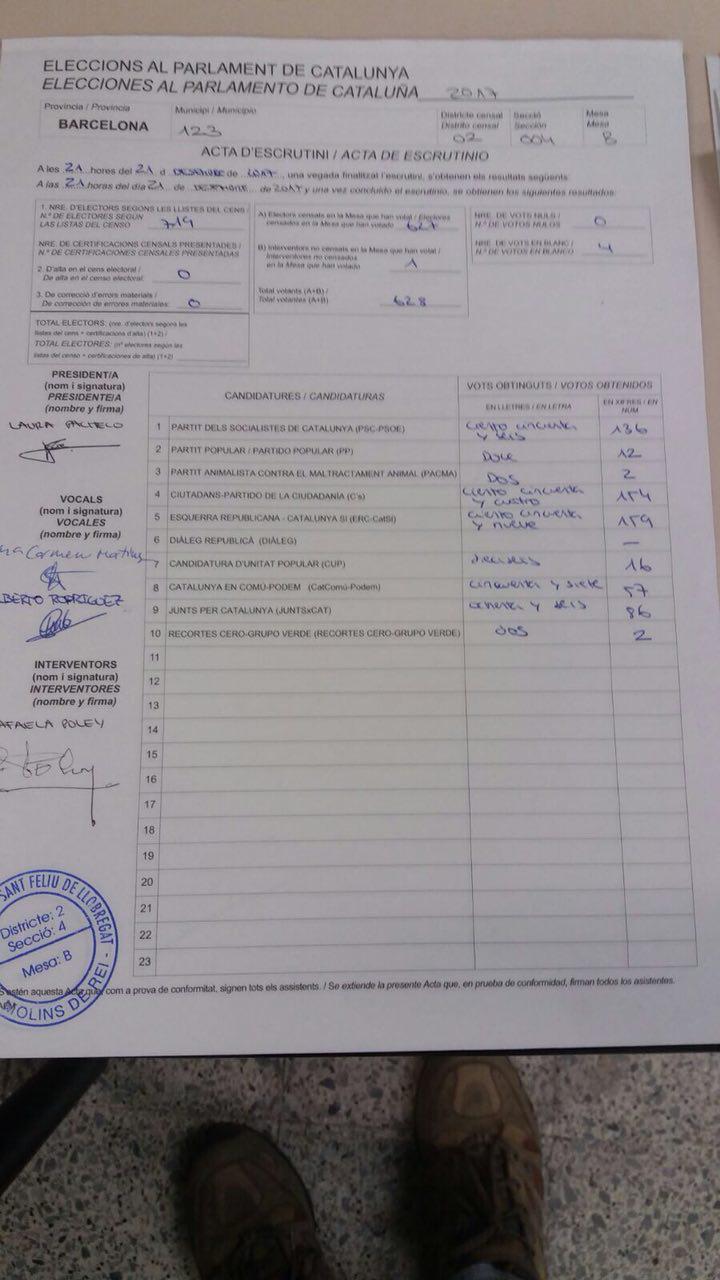 ELECCIONS AL PARLAMENT DE CATALUNYA
ELECCIONES AL PARLAMENTO DE CATALUÑA 2017
Provincia / Provincia
BARCELONA
Municipi / Municipio
123
Districte censal
Distrito censal
02
Secció
Sección
004
Mesa
Mesa
B
ACTA D'ESCRUTINI / ACTA DE ESCRUTINIO
A les 21 hores del 21 d de 2017, una vegada finalitzat l'escrutini, s'obtenen els resultats següents:
A las 21 horas del día 21 de de 2017 y una vez concluido el escrutinio, se obtienen los siguientes resultados:
1. NRE. D'ELECTORS SEGONS LES LLISTES DEL CENS /
N.º DE ELECTORES SEGÚN
LAS LISTAS DEL CENSO 719
NRE. DE CERTIFICACIONS CENSALS PRESENTADES /
N.º DE CERTIFICACIONES CENSALES PRESENTADAS
2. D'alta en el cens electoral /
De alta en el censo electoral: 0
3. De correcció d'errors materials /
De corrección de errores materiales: 0
TOTAL ELECTORS: (nre. d'electors segons les
llistes del cens + certificacions d'alta) (1+2) /
TOTAL ELECTORES: (nº electores según las
listas del censo + certificaciones de alta) (1+2)
A) Electors censats en la Mesa que han votat / Electores
censados en la Mesa que han votado 627
B) Interventors no censats en la Mesa que han votat /
Interventores no censados
en la Mesa que han votado 1
Total votants (A+B) /
Total votantes (A+B) 628
NRE. DE VOTS NULS /
N.º DE VOTOS NULOS 0
NRE. DE VOTS EN BLANC /
N.º DE VOTOS EN BLANCO 4
PRESIDENT/A
(nom i signatura)
PRESIDENTE/A
(nombre y firma)
LAURA PACHECO
VOCALS
(nom i signatura)
VOCALES
(nombre y firma)
na Carmen
BERTO RODRIGUEZ
INTERVENTORS
(nom i signatura)
INTERVENTORES
(nombre y firma)
AFAELA POLEY
CANDIDATURES / CANDIDATURAS
VOTS OBTINGUTS / VOTOS OBTENIDOS
EN LLETRES / EN LETRA
EN XIFRES / EN NÚM
1 PARTIT DELS SOCIALISTES DE CATALUNYA (PSC-PSOE) ciento cincuenta y seis 136
2 PARTIT POPULAR / PARTIDO POPULAR (PP) Doce 12
3 PARTIT ANIMALISTA CONTRA EL MALTRACTAMENT ANIMAL (PACMA) DOS 2
4 CIUTADANS-PARTIDO DE LA CIUDADANÍA (C's) ciento cincuenta y cuatro 154
5 ESQUERRA REPUBLICANA - CATALUNYA SÍ (ERC-CatSí) ciento cincuenta y nueve 159
6 DIÀLEG REPUBLICÀ (DIÀLEG) —
7 CANDIDATURA D'UNITAT POPULAR (CUP) dieciseis 16
8 CATALUNYA EN COMÚ-PODEM (CatComú-Podem) cincuenta y siete 57
9 JUNTS PER CATALUNYA (JUNTSxCAT) ochenta y seis 86
10 RECORTES CERO-GRUPO VERDE (RECORTES CERO-GRUPO VERDE) dos 2
11
12
13
14
15
16
17
18
19
20
21
22
23
S'estén aquesta Acta que, com a prova de conformitat, signen tots els assistents. / Se extiende la presente Acta que, en prueba de conformidad, firman todos los asistentes.
SANT FELIU DE LLOBREGAT
Districte: 2
Secció: 4
Mesa: B
MOLINS DE REI -